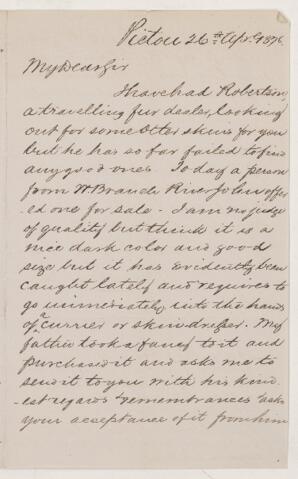 Pictou 26th Apl. 1876.
My Dear Sir
I have had Robertson,
a travelling fur dealer, looking
out for some Otter skins for you
but he has so far failed to find
any good ones. To day a person
from W Branch River John offer
ed one for sale - I am no judge
of quality but think it is a
nice dark color and good
size but it has evidently been
caught lately and requires to
go immediately into the hands
of a currier or skin dresser. My
father took a fancy to it and
purchased it and asks me to
send it to you with his kind
est regards & remembrances asks
your acceptance of it from him